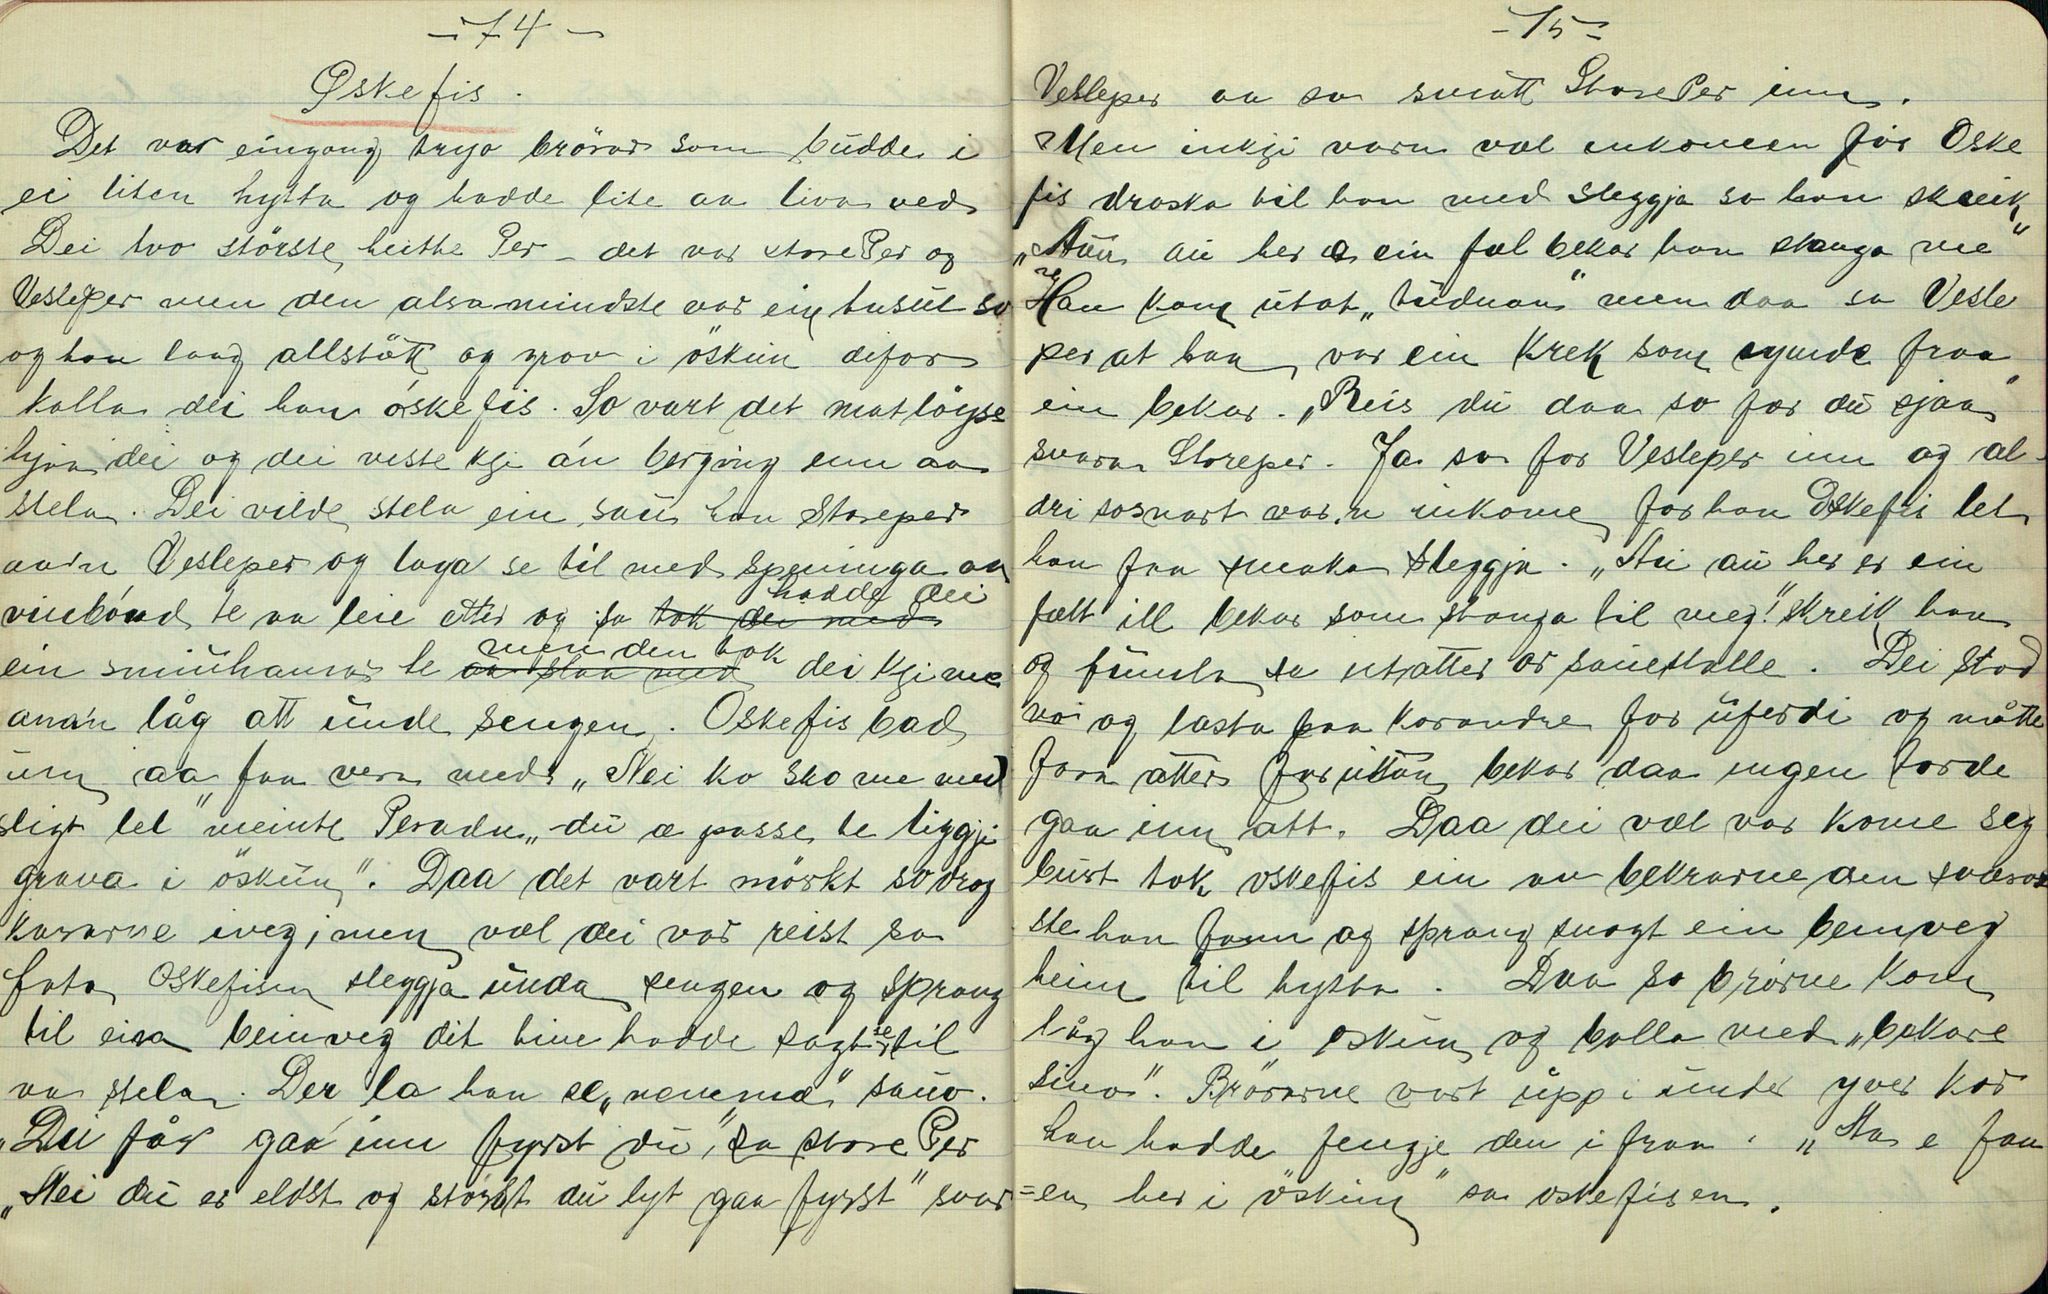 - 74 -
Øskefis.
Det var eingong tryo brörar som budde i
ei liten hytta og hadde lite aa liva ved
Dei tvo störste heitte Per - det var storePer og
VeslePer men den alra mindste var ein tusul so
og han laag allstött og grov i öskun difor
kalla dei han öskefis. So vart det matlöyse
hjaa dei og dei visste kje án berging enn aa
stela. Dei vilde stela ein sau han Storeper
Vesleper og laga se til med speninga aa
te aa leie etter og so tok dei med hadde dei
ein smiuhamar te aa slaa med men den tok dei kji me
anna'n låg att unde sengen. Oskefis bad
um aa faa vera med. „Nei ko sko me med
sligt let" meinte Peradn „du æ passe te liggji
grava i öskun". Daa det vart mörkt so drog
kararne iveg, men væl dei var reist so
fata Oskefisen sleggja unda sengen og sprang
til ein beinveg dit hine hadde sagt se til
aa stela. Der la han se „nemmd" sauo.
„Du får gaa inn fyrst du", sa store Per
„Nei du er eldst og störst du lyt gaa fyrst" svor
- 75 -
Vesleper aa so smatt StorePer inn.
Men inkji varn væl inkomen för Oske
fis draska til han med sleggja so han skreik
„Au au her e ein fæl bekar han stanga me"
Han kom utat „tudnan" men daa sa Vesle
per at han var ein krek som rymde fraa
ein bekar. „Reis du daa so fær du sjaa"
svara Storeper. Ja so for Vesleper inn og al-
dri sosnart var'n inkome for han Oskefis let
han faa smaka sleggja. „Au au her er ein
fælt ill bekar som stanga til meg!" skreik han
og tumla se utatter or sauestalle. Dei stod
no og lasta paa korandre for uferdi og måtte
fara atter forutan bekar daa ingen torde
gaa inn att. Daa dei væl var kome seg
burt tok oskefis ein av bekrarne den sværas
ste han fann og sprang snogt ein beinveg
heim til hytta. Daa so brörne kom
låg han i oskun og balla med „bekare
sino". Brörarne vart upp i under yver kor
han hadde fengje den i fraa. „Aa e faan
=en her i öskun" sa oskefisen.